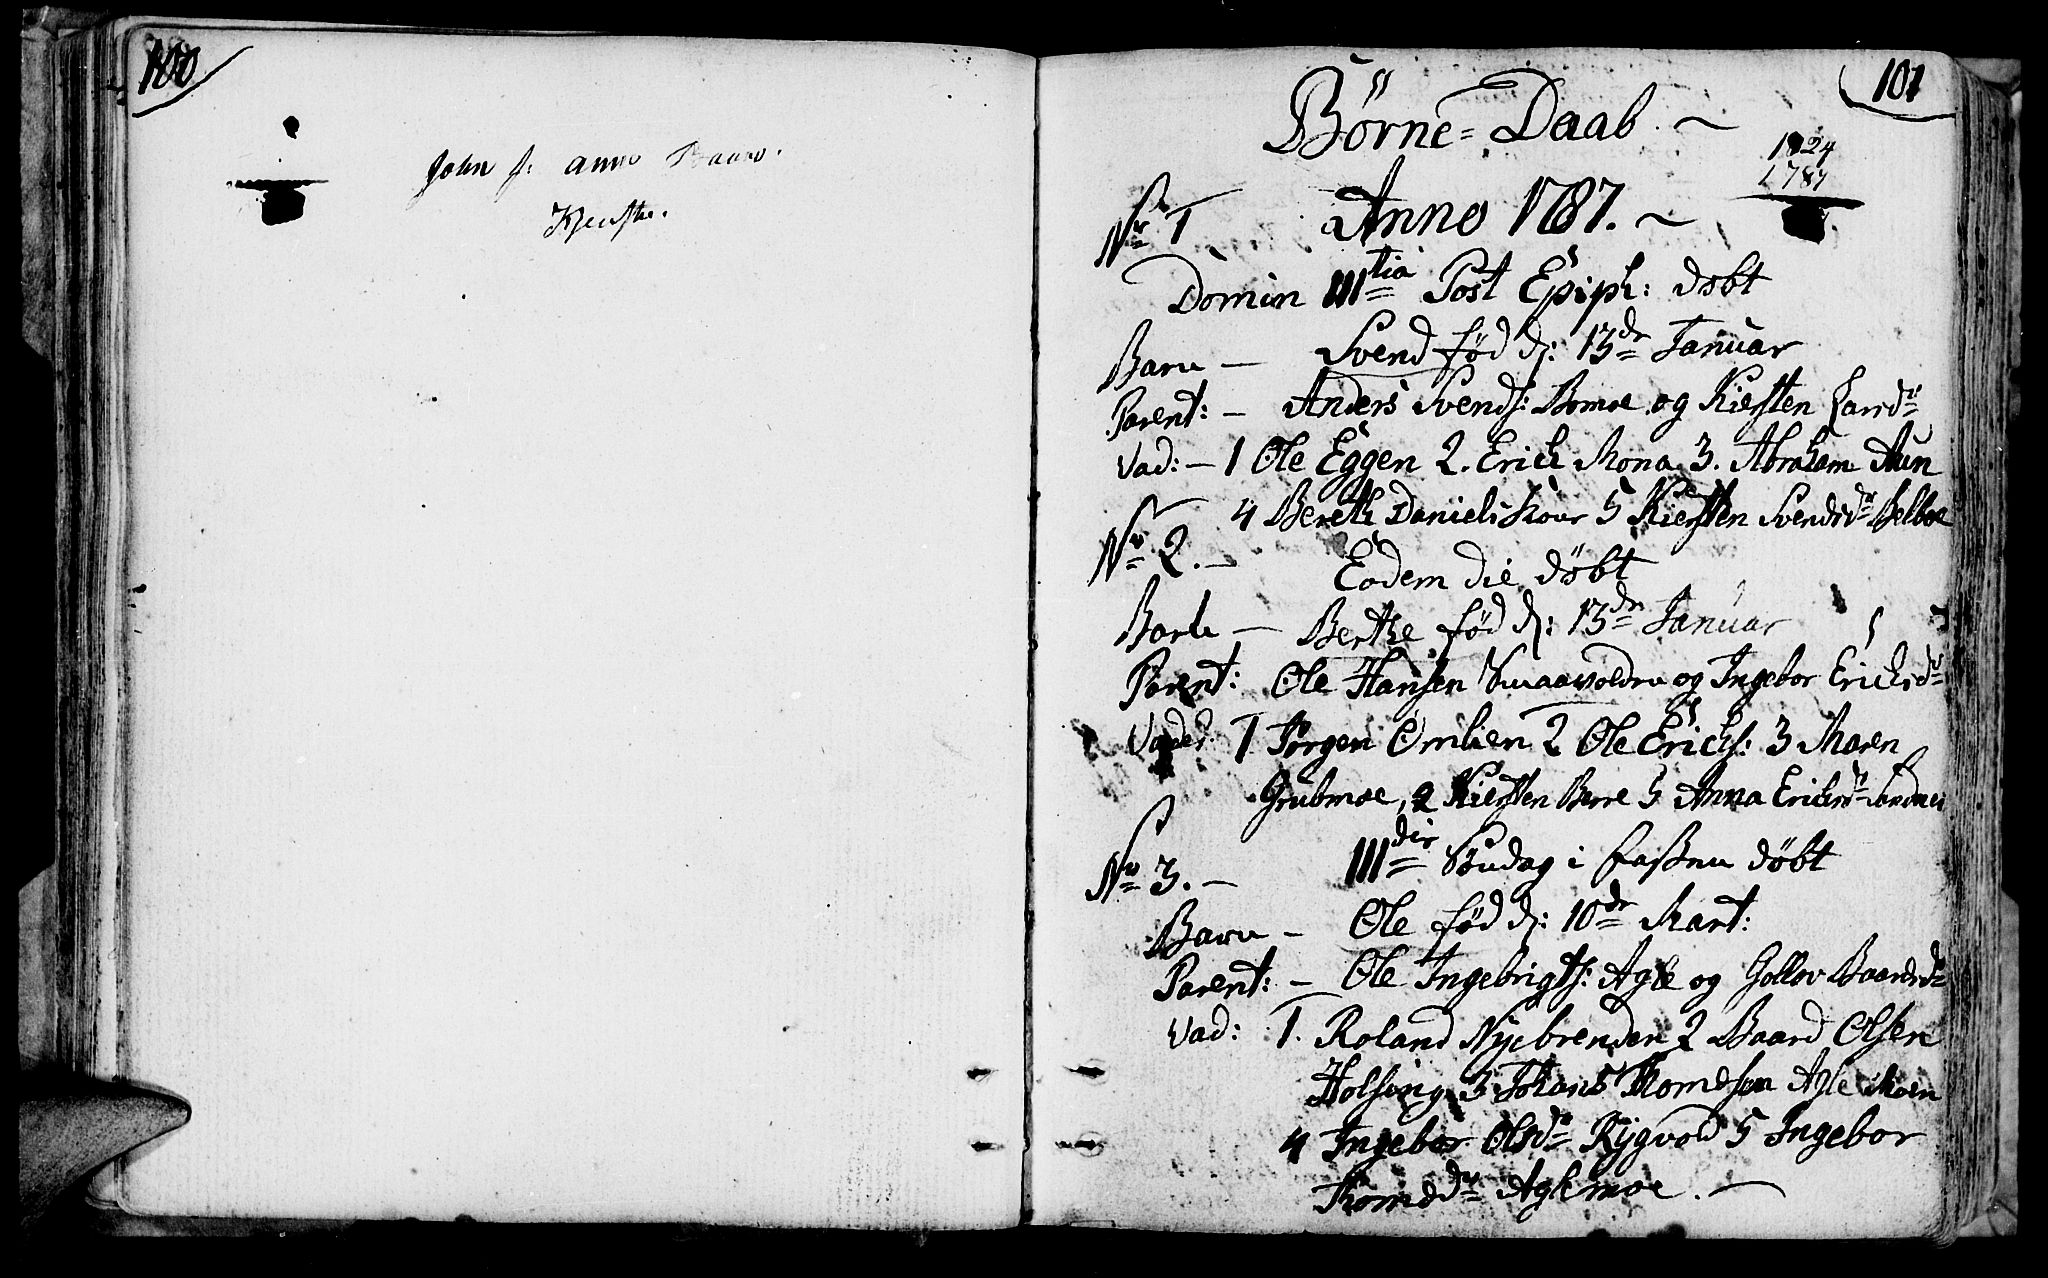 100
John
101
Börne=Daab. ~
1824
1787
Anno 1787. ~
No 1
Domin III tia Post Epiph: döbt
Barn — Svend fød d: 13de Januar
Parent: — Anders Svends: Bomoe og Kiersten Larsdr
Vad: — 1 Ole Eggen 2. Erich Mona 3. Abraham Aun
4 Bereth Danielskour 5 Kiersten Svendsdr Belboe
No 2. —
Eodem die döbt
Barn — Berthe fød d: 13de Januar
Parent: Ole Hansen og Ingebor Ericksdr
Vad: 1 Jørgen Omlien 2 Ole Ericks: 3 Maren
Grubmoe, Kiersten Berre 5 Anna Ericksdr
No 3. —
III die Søndag i Fasten döbt
Barn — Ole fød d: 10de Mart:
Parent: — Ole Ingebrigts: Agle og Gollov Baardsdr
Vad: 1. Roland Nyebrenden 2 Baard Olsen
Holsing 3 Johans Thomesen Agle Moen
4 Ingebor Olsdr Rygvold 5 Ingebor
Thomedr Aglemoe. —